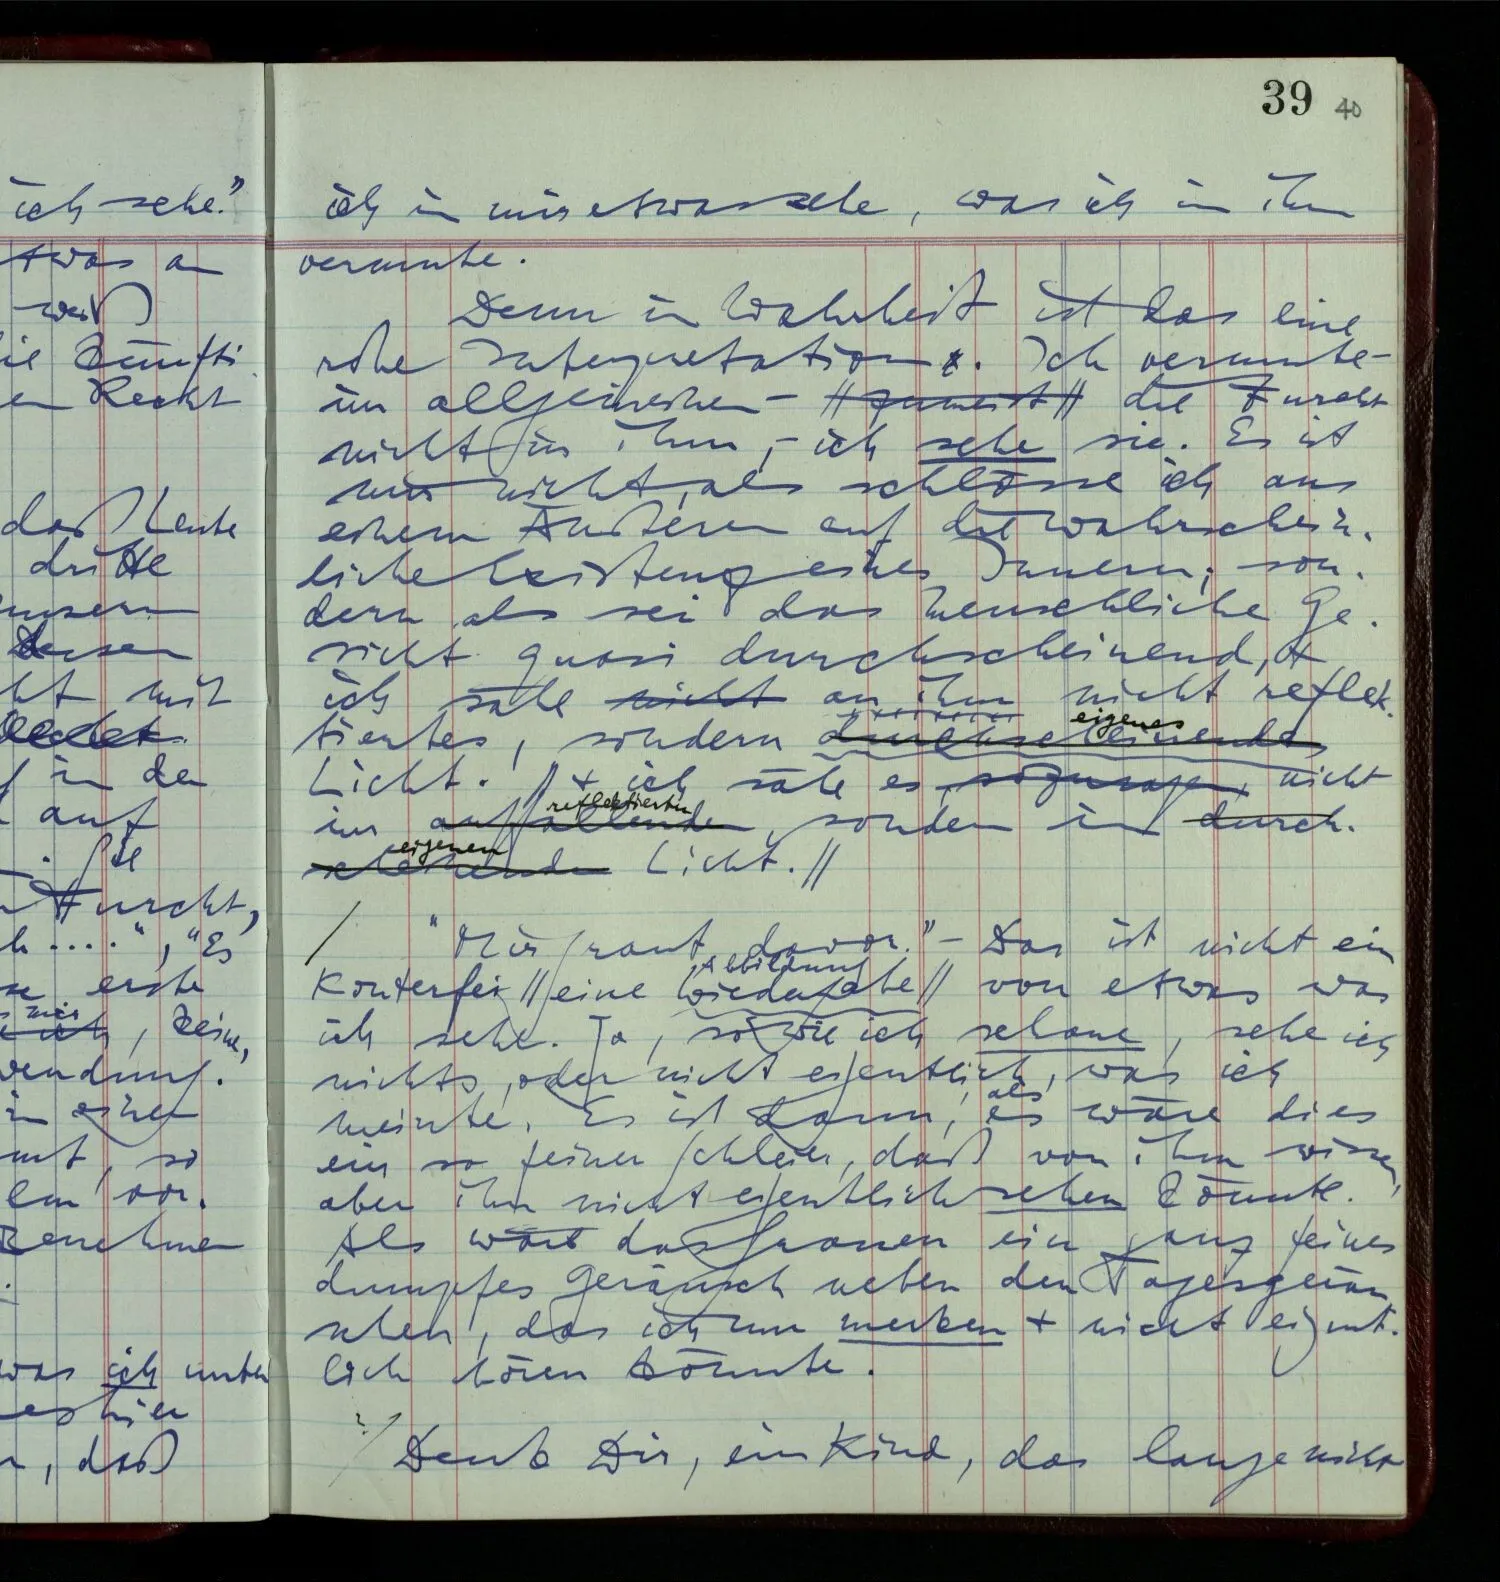 ich sehe."
twas an
weiß
ie künfti
en Recht
daß heute
dritte
unserm
ht mit
in den
auf
Furcht,
h ....", "Es
se erste
mir
mich, keine,
wendung.
in einer
mt, so
lem vor.
Benehmen
was ich unter
es hier
n, daß
39 40
ich in mir etwas sehe, was ich in ihm
vermute.
Denn in Wahrheit ist das eine
rohe Interpretation. Ich vermute –
im allgemeinen – // zumeist // die Furcht
nicht in ihm, – ich sehe sie. Es ist
mir nicht, als schlösse ich aus
einem Äußeren auf die wahrschein-
liche Existenz eines Innern; son-
dern als sei das menschliche Ge-
sicht quasi durchscheinend, +
ich sähe nicht an ihm nicht reflek-
eigenes
tiertes, sondern durchscheinendes
Licht. // + ich sähe es, sozusagen, nicht
reflektierten
im auffallenden, sondern im durch-
eigenen
scheinenden Licht. //
/ "Mir graut davor." – Das ist nicht ein
Abbildung
Konterfei // eine Wiedergabe // von etwas was
ich sehe. Ja, so wie ich schaue, sehe ich
nichts, oder nicht eigentlich, was ich
als
meinte. Es ist dann, es wäre dies
ein so feiner Schleier, daß von ihm wissen,
aber ihn nicht eigentlich sehen könnte.
Als wäre das Grauen ein ganz feines
dumpfes Geräusch neben den Tagesgeräu
schen, das ich nur merken + nicht eigent-
lich hören könnte.
?/ Denk Dir, ein Kind, das lange nicht